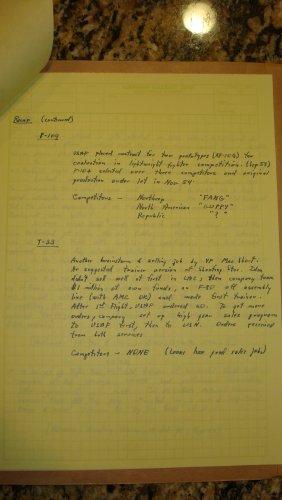 (continued)
F-104
USAF placed contract for two prototypes (XF-104) for
evaluation in lightweight fighter competition.
F-104 selected over three competitors and original
production order let in Nov 54.
Competitors - Northrop "FANG"
North American "GUPPY"
Republic "?"
T-33
Another brainstorm & selling job by VP Mac Short.
He suggested trainer version of Shooting Star. Idea
didn't sell well at first in USAF, then company team
$1 million of own funds, an F-80 off assembly
line (with AMC OK) and made first trainer.
After 1st Flight, USAF ordered 20. To get more
orders, company set up high gear sales program
to USAF first, then to USN. Orders received
from both services
Competitors - NONE (Looks like good sales job)